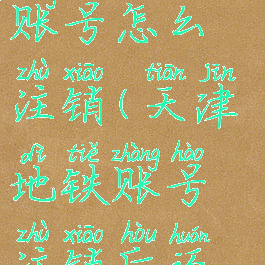 账号怎么
zhù xiāo tiān jīn
注销(天津
dì tiě zhàng hào
地铁账号
zhù xiāo hòu huán
注销后还